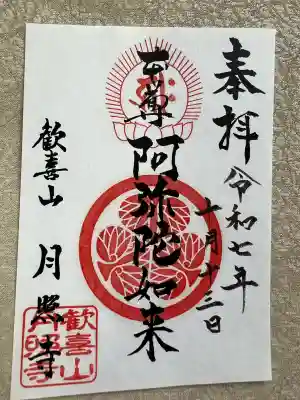 奉拝
令和七年
十一月十三日
本尊阿弥陀如来
歓喜山
月照寺
歓喜山
月照寺